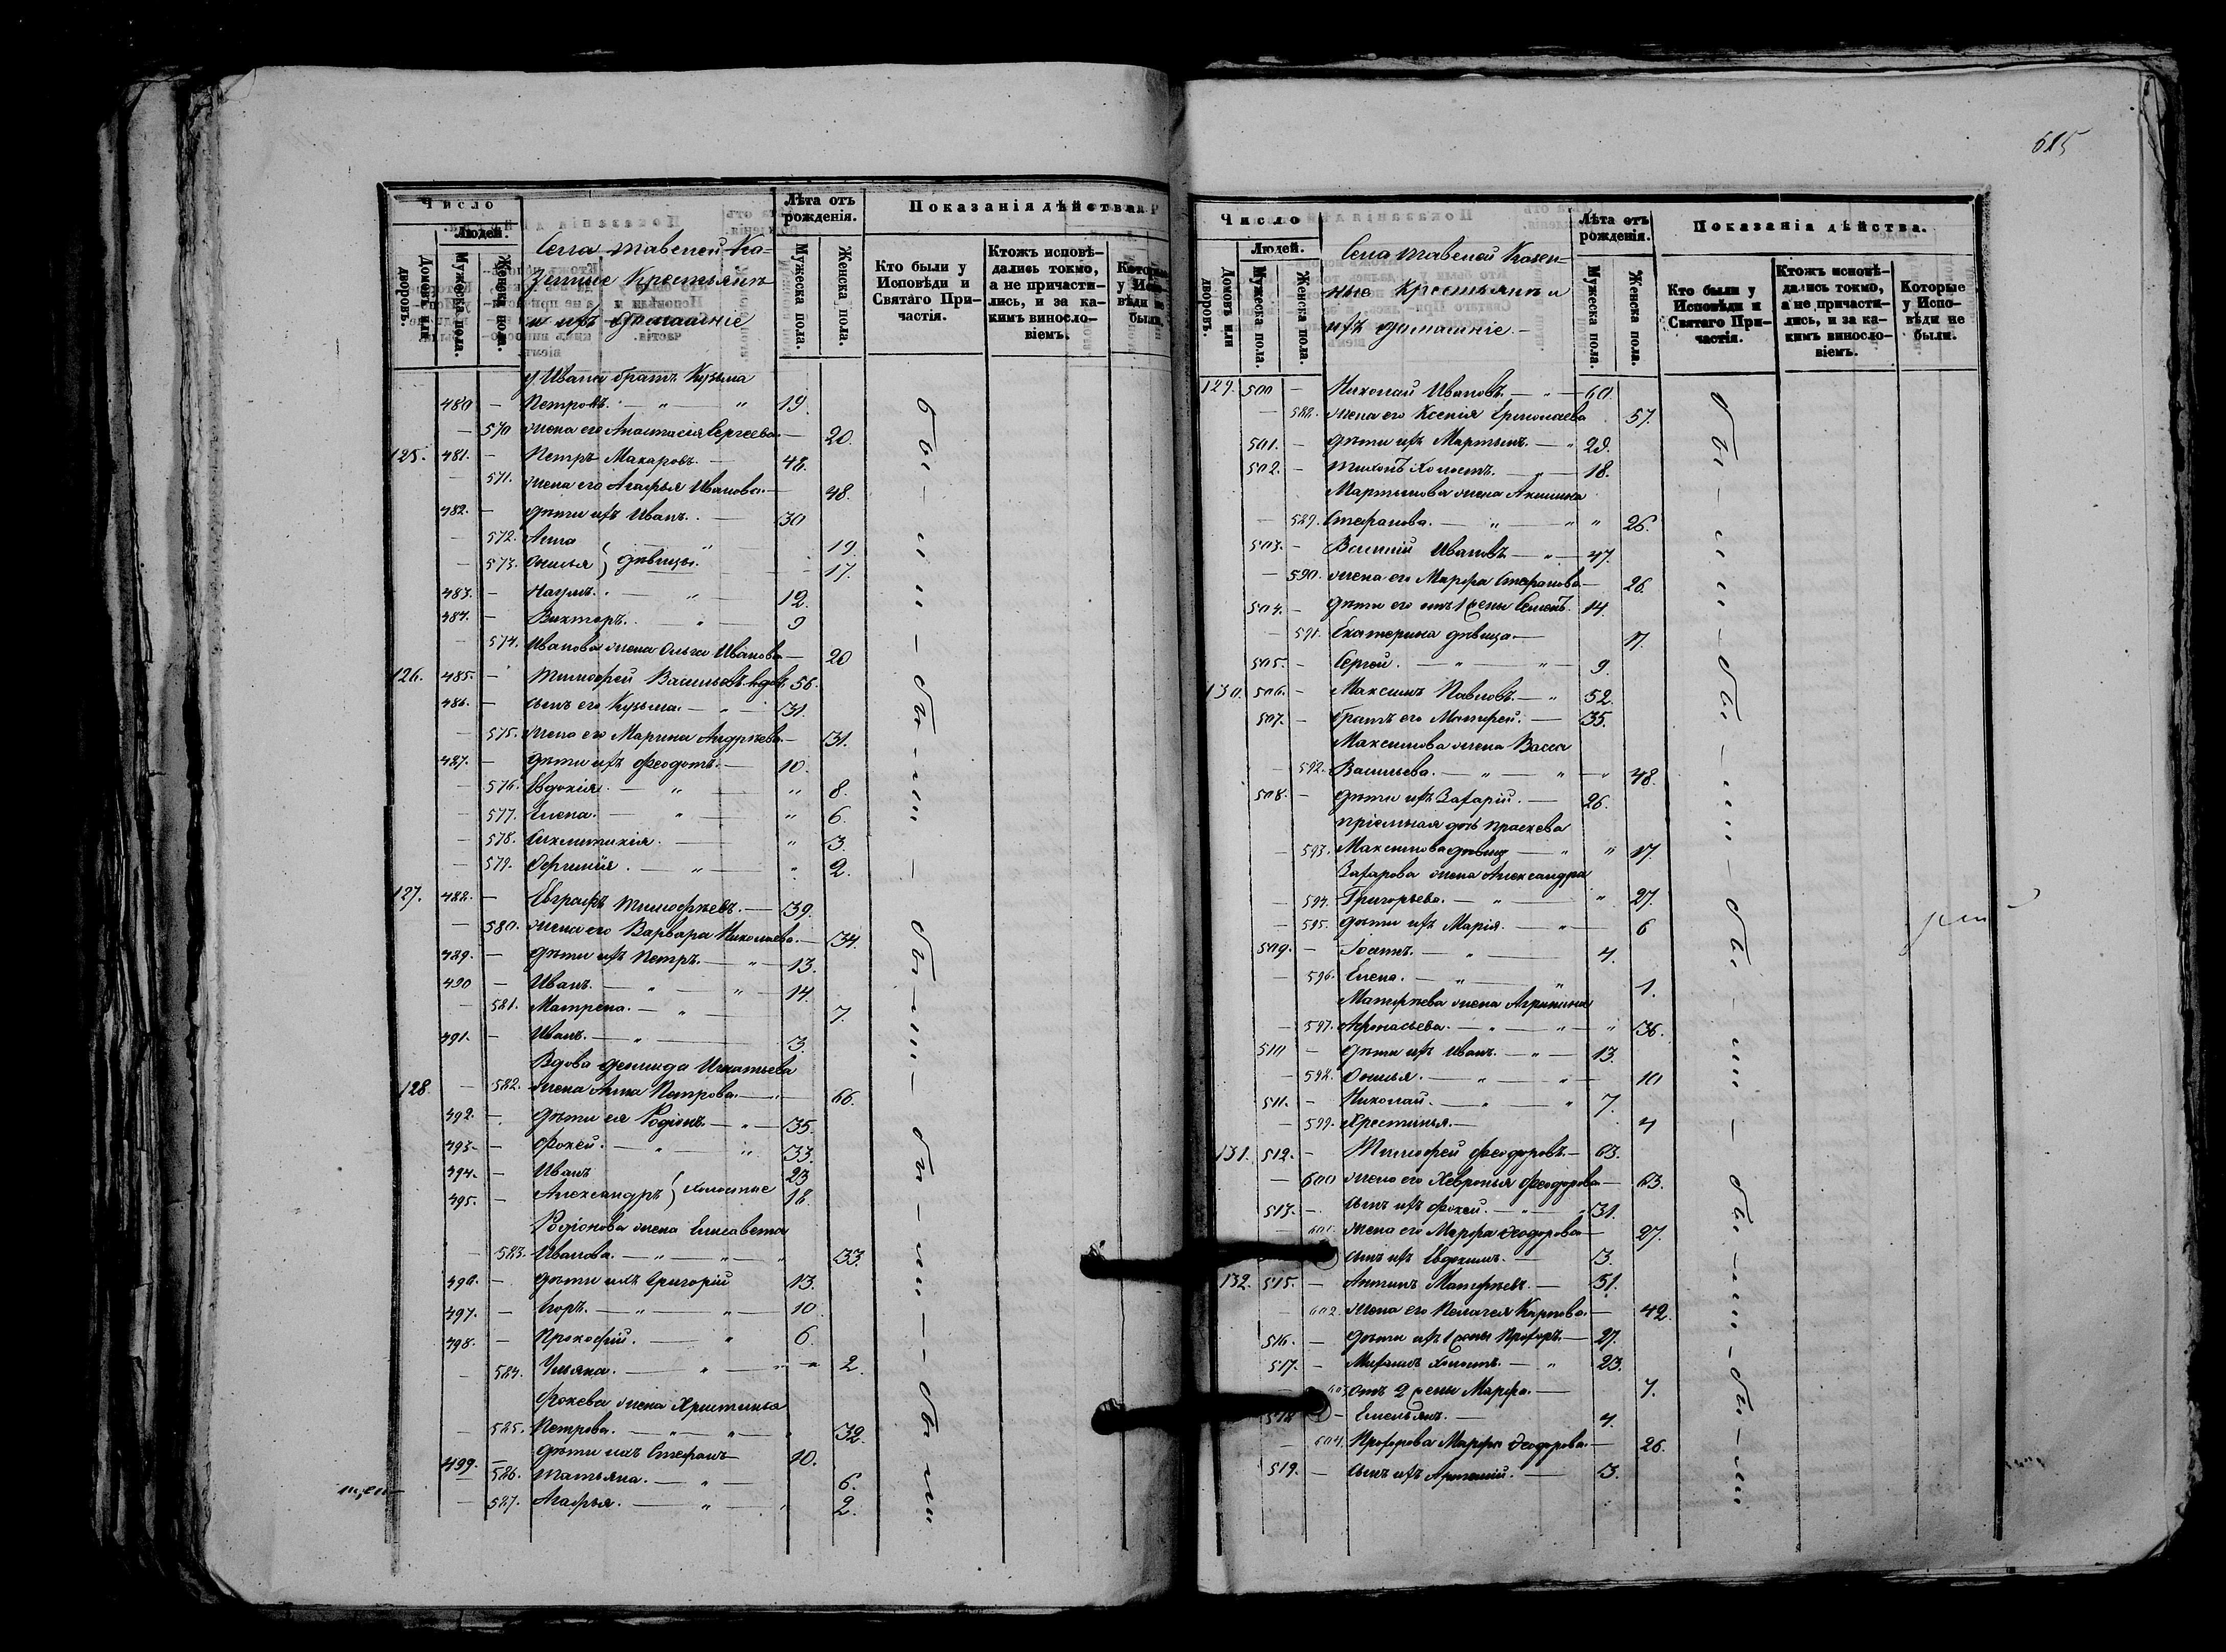 Число
Людей.
Домовъ или дворовъ.
Мужеска пола.
Женска пола.
Села Тавеной Ка-
зенные Крестьяне
и ихъ домашніе
Лѣта отъ рожденія.
Мужеска пола.
Женска пола.
Показанія дѣйства.
Кто были у Исповѣди и Святаго При-частія.
Ктожъ исповѣ-дались токмо, а не причасти-лись, и за ка-кимъ винословіемъ.
Которые у Испо-вѣди не были.
у Ивана братъ Кузьма
480 – Петровъ. – " – " 19.
– 570 жена его Анастасія Сергеева. – 20.
125. 481. – Петръ Макаровъ. – 48.
– 571. жена его Агафья Иванова. – 48.
482. – дѣти ихъ Иванъ. – 30
– 572. Анна 19.
– 573. Онисья } дѣвицы. 17.
483. – Наумъ. " – 12.
484. – Викторъ. – " – 9
– 574. Иванова жена Ольга Иванова – 20
126. 485. – Тимофей Васильевъ вдов. 56.
486. – сынъ его Кузьма. – " – 31.
– 575. жена его Марина Андреева. – 31.
487. – дѣти ихъ Феодотъ. – 10.
– 576. Евдокія. – " – " 8.
– 577. Елена. – " – " 6.
– 578. Синклитикія. – " 3.
– 579. Офимія. – " – " 2.
127. 488. – Евграфъ Тимофѣевъ. – 39.
– 580. жена его Варвара Николаева. – 34.
489. – дѣти ихъ Петръ. – " – 13.
490 – Иванъ. – " – " – 14.
– 581. Матрена. – " – 7.
491. – Иванъ. – " – 3.
Вдова Демида Игнатьева
128. – 582. жена Анна Петрова. – " – 66.
492. – дѣти ея Родіонъ. – " – 35.
493. – Фокей. – " – " 33.
494. – Иванъ 23
495. – Александръ } холостые 18.
Родіонова жена Елисавета
– 583. Иванова. – " – " – " 33.
496. – дѣти ихъ Григорій 13.
497. – Егоръ. – " – " – 10.
498. – Прокофій. – " 6.
– 584. Ульяна. – " – " " 2.
Фокева жена Христинья
– 585. Петрова. – " – " " 32.
499. – дѣти ихъ Стефанъ 10.
– 586. Татьяна. – " – 6.
– 587. Агафья. – " – " 2.
615
Число
Людей.
Домовъ или дворовъ.
Мужеска пола.
Женска пола.
Села Тавеной Казен-
ные Крестьяне и
ихъ домашніе. –
Лѣта отъ рожденія.
Мужеска пола.
Женска пола.
Показанія дѣйства.
Кто были у Исповѣди и Святаго При-частія.
Ктожъ исповѣ-дались токмо, а не причасти-лись, и за ка-кимъ винословіемъ.
Которые у Испо-вѣди не были.
129. 500 – Николай Ивановъ. – " – 60.
– 588. жена его Ксенія Ермолаева 57.
501. – дѣти ихъ Мартынъ. – " 29.
502. – Тихонъ холостъ. – " – 18.
Мартынова жена Акилина
– 589. Стефанова. – " – " " 26.
503. – Василій Ивановъ – " – 47.
– 590. жена его Марфа Стефанова – 26.
504. – дѣти его отъ 1 жены Семенъ. 14.
– 591. Екатерина дѣвица. – 17.
505. – Сергей. – " – " – 9.
130. 506. – Максимъ Павловъ. – " 52.
507. – братъ его Матфей. – 35.
Максимова жена Васса
– 592. Васильева. – " – " – " 48.
508. – дѣти ихъ Захарій. – 26.
пріемная дочь Праскева
– 593. Максимова дѣвиц – " " 17.
Захарова жена Александра
– 594. Григорьева. – " – " 27.
– 595. дѣти ихъ Марія. – " – 6
509. – Іоаннъ. – " – 4.
– 596. Елена. – " – " 1.
Матфѣева жена Агрипина
– 597. Афонасьева. – " – " – " 36.
510 – дѣти ихъ Иванъ. – " – 13.
– 598. Онисья. – " – " – 10
511. – Николай. – " – " 7.
– 599. Хрестинья. – 4
131. 512. – Тимофей Феодоровъ. – 63.
– 600 жена его Хевронья Феодорова – 63.
513. – сынъ ихъ Фокей. – " – " 31.
601. жена его Марфа Феодорова – 27.
сынъ ихъ Евдокимъ. – 3.
132. 515. – Антипъ Матфѣевъ. – 51.
602. жена его Пелагея Карпова. – 42.
516. – дѣти ихъ 1 жены Прохоръ. – 27.
517. – Михаилъ холостъ. – " 23.
603 отъ 2 жены Марфа. – 7.
518 – Емельянъ. – 4.
– 604. Прохорова Марфа Феодорова. – 26.
519. – сынъ ихъ Арсеній. – 3.